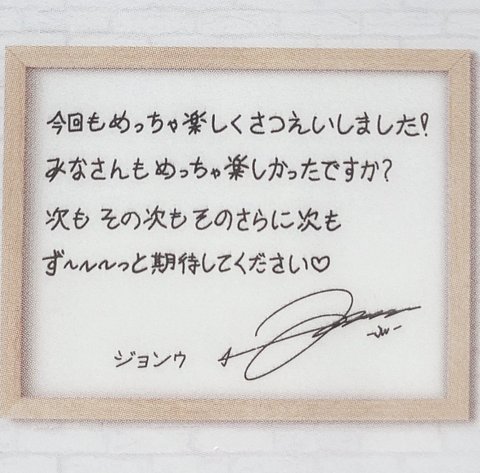 今回もめっちゃ楽しくさつえいしました!
みなさんもめっちゃ楽しかったですか?
次も その次も そのさらに次も
ず〜〜〜〜っと期待してください♡
ジョンウ
-JW-